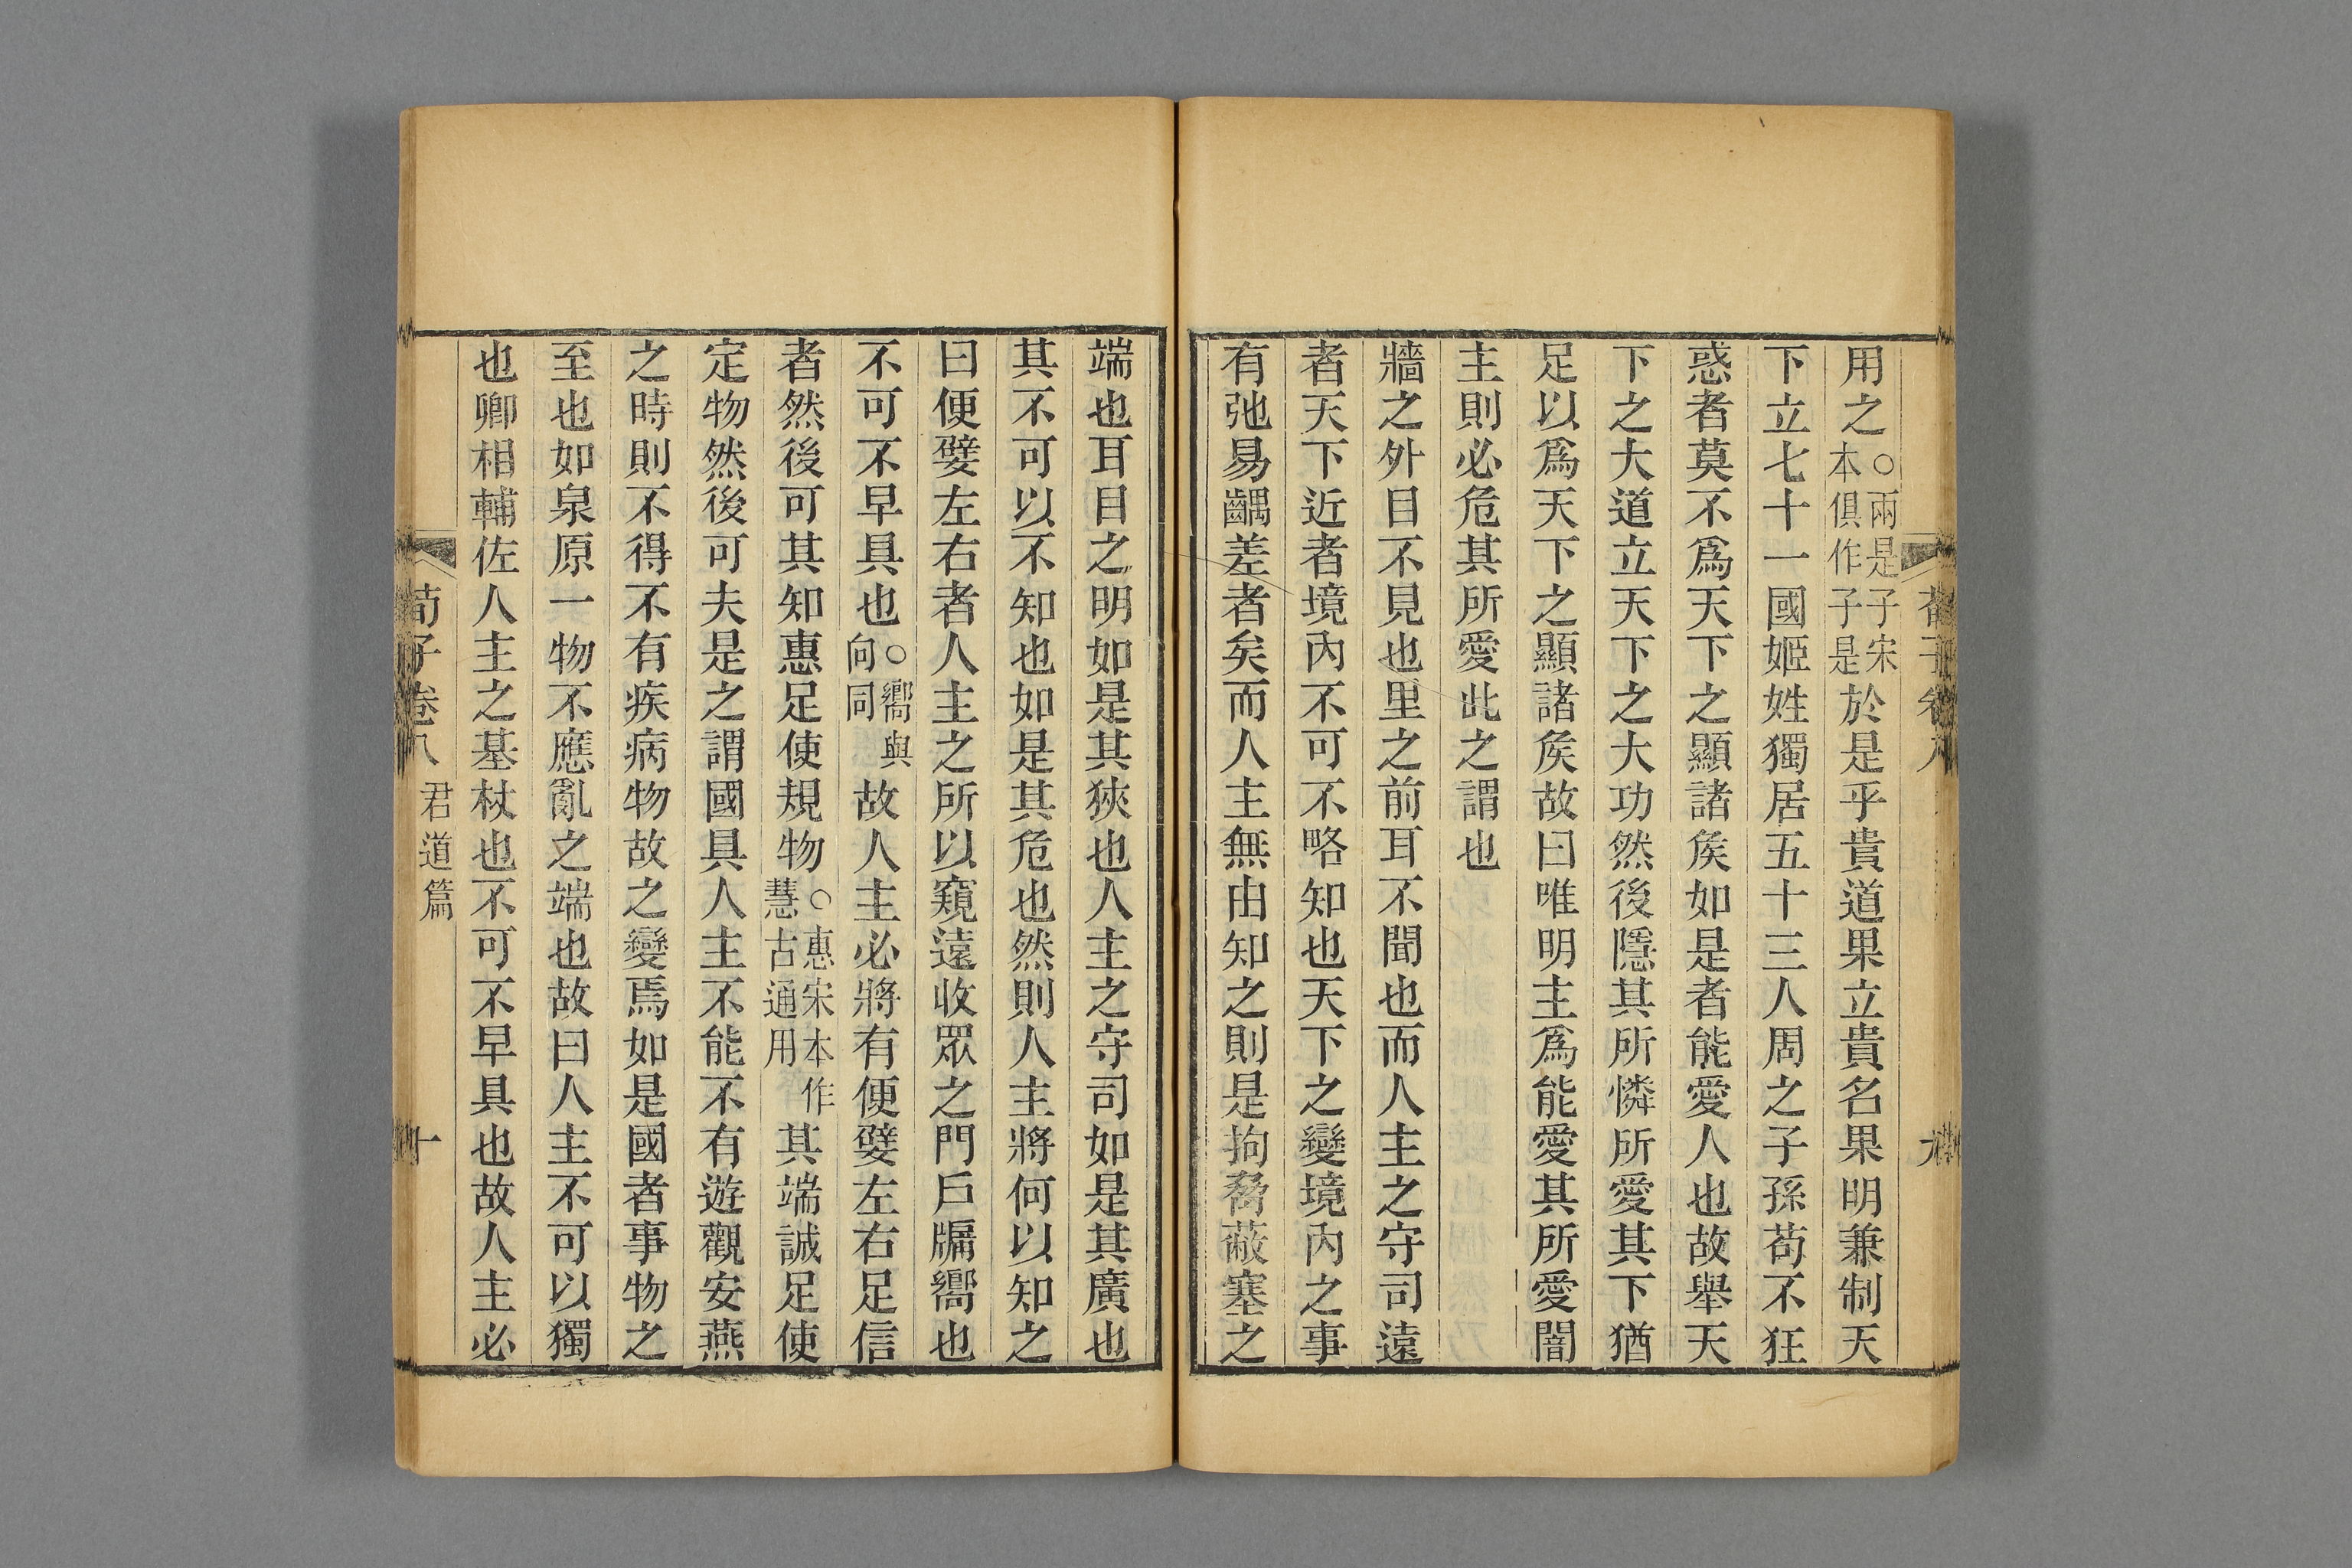 用之○兩是子宋本俱作子是於是乎貴道果立貴名果明兼制天
下立七十一國姬姓獨居五十三人周之子孫苟不狂
惑者莫不爲天下之顯諸矦如是者能愛人也故舉天
下之大道立天下之大功然後隱其所憐所愛其下猶
足以爲天下之顯諸矦故曰唯明主爲能愛其所愛闇
主則必危其所愛此之謂也
牆之外目不見也里之前耳不聞也而人主之守司遠
者天下近者境內不可不略知也天下之變境內之事
有弛易齵差者矣而人主無由知之則是拘脅蔽塞之
端也耳目之明如是其狹也人主之守司如是其廣也
其不可以不知也如是其危也然則人主將何以知之
曰便嬖左右者人主之所以窺遠收眾之門戶牖嚮也
不可不早具也○嚮與向同故人主必將有便嬖左右足信
者然後可其知惠足使規物○惠宋本作慧古通用其端誠足使
定物然後可夫是之謂國具人主不能不有遊觀安燕
之時則不得不有疾病物故之變焉如是國者事物之
至也如泉原一物不應亂之端也故曰人主不可以獨
也卿相輔佐人主之基杖也不可不早具也故人主必
荀子卷八 君道篇 十